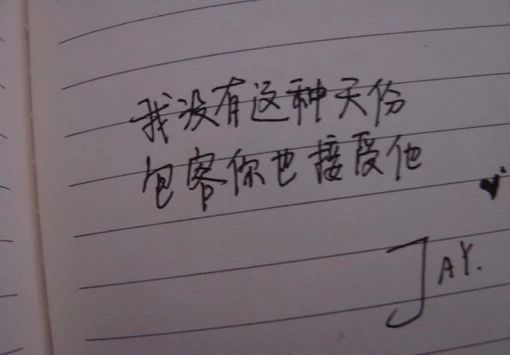 我没有这种天份
包容你也接受他
JAY.